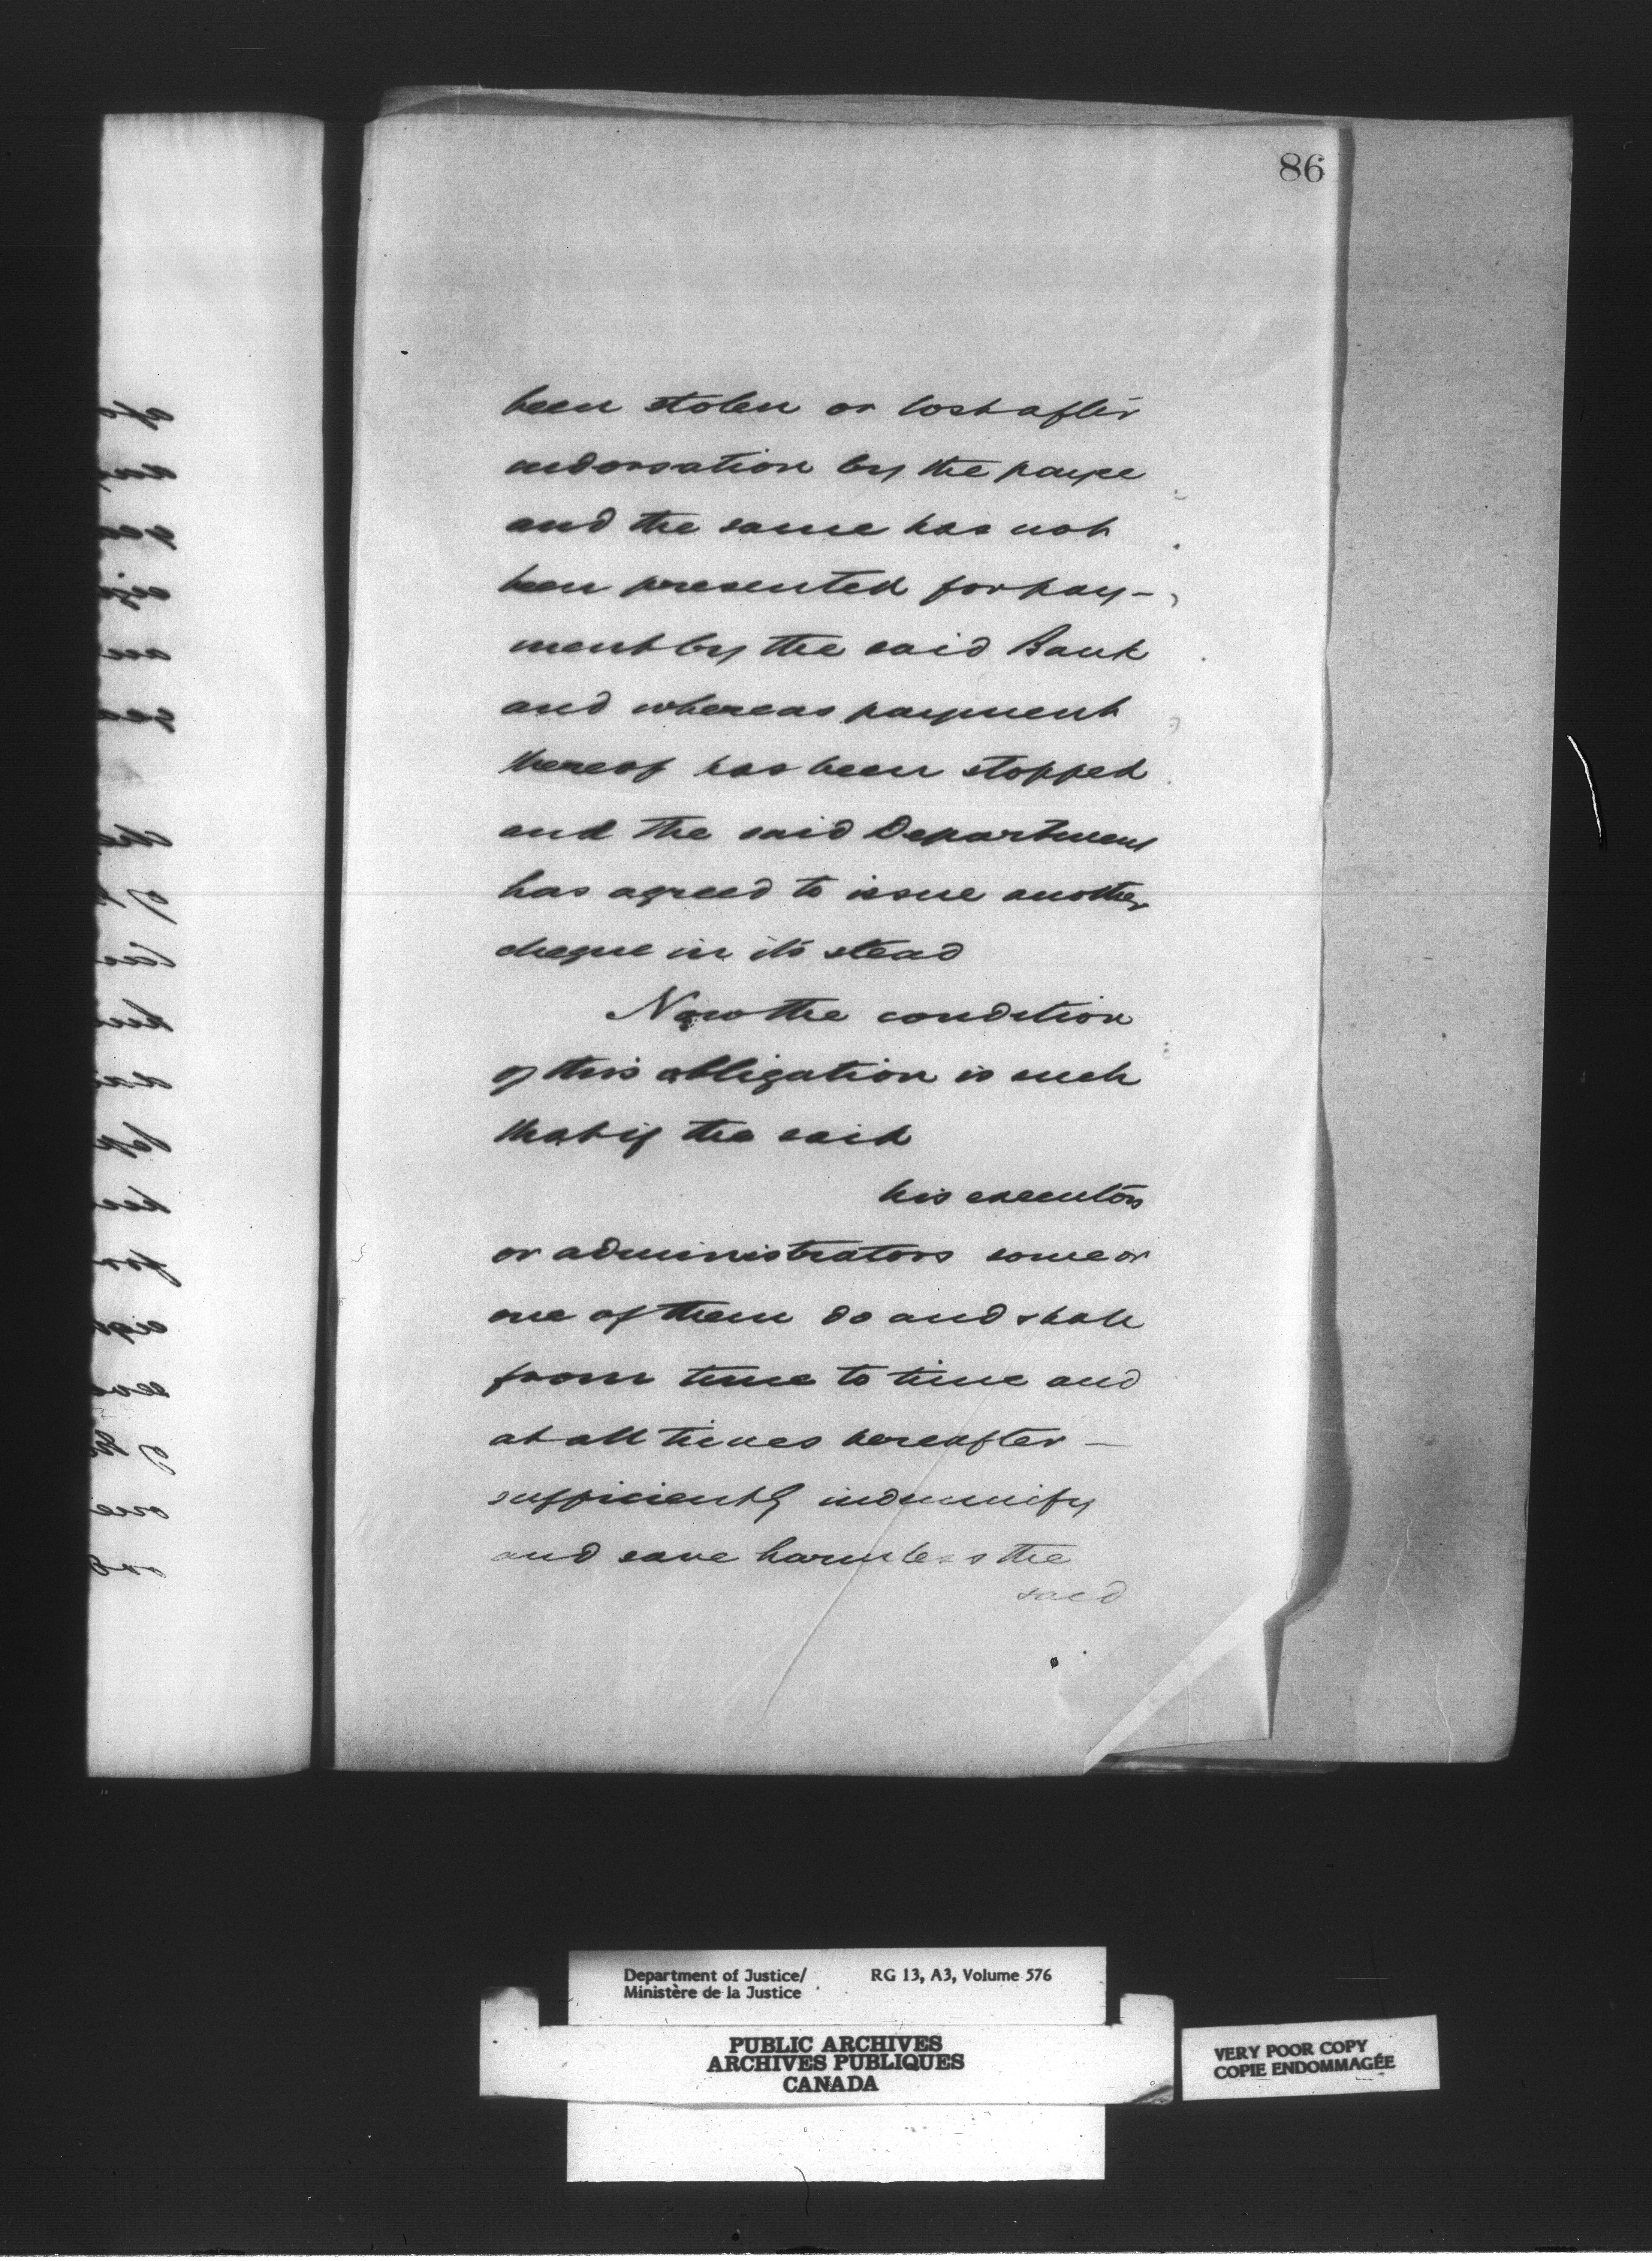 86
been stolen or lost after
indorsation by the payee
and the same has not
been presented for pay-
ment by the said Bank
and whereas payment
thereof has been stopped
and the said Department
has agreed to issue another
cheque in its stead
Now the condition
of this obligation is such
that if the said
his executors
or administrators some or
one of them do and shall
from time to time and
at all times hereafter —
sufficiently indemnify
and save harmless the
said
Department of Justice/ RG 13, A3, Volume 576
Ministère de la Justice
PUBLIC ARCHIVES
ARCHIVES PUBLIQUES
CANADA
VERY POOR COPY
COPIE ENDOMMAGÉE